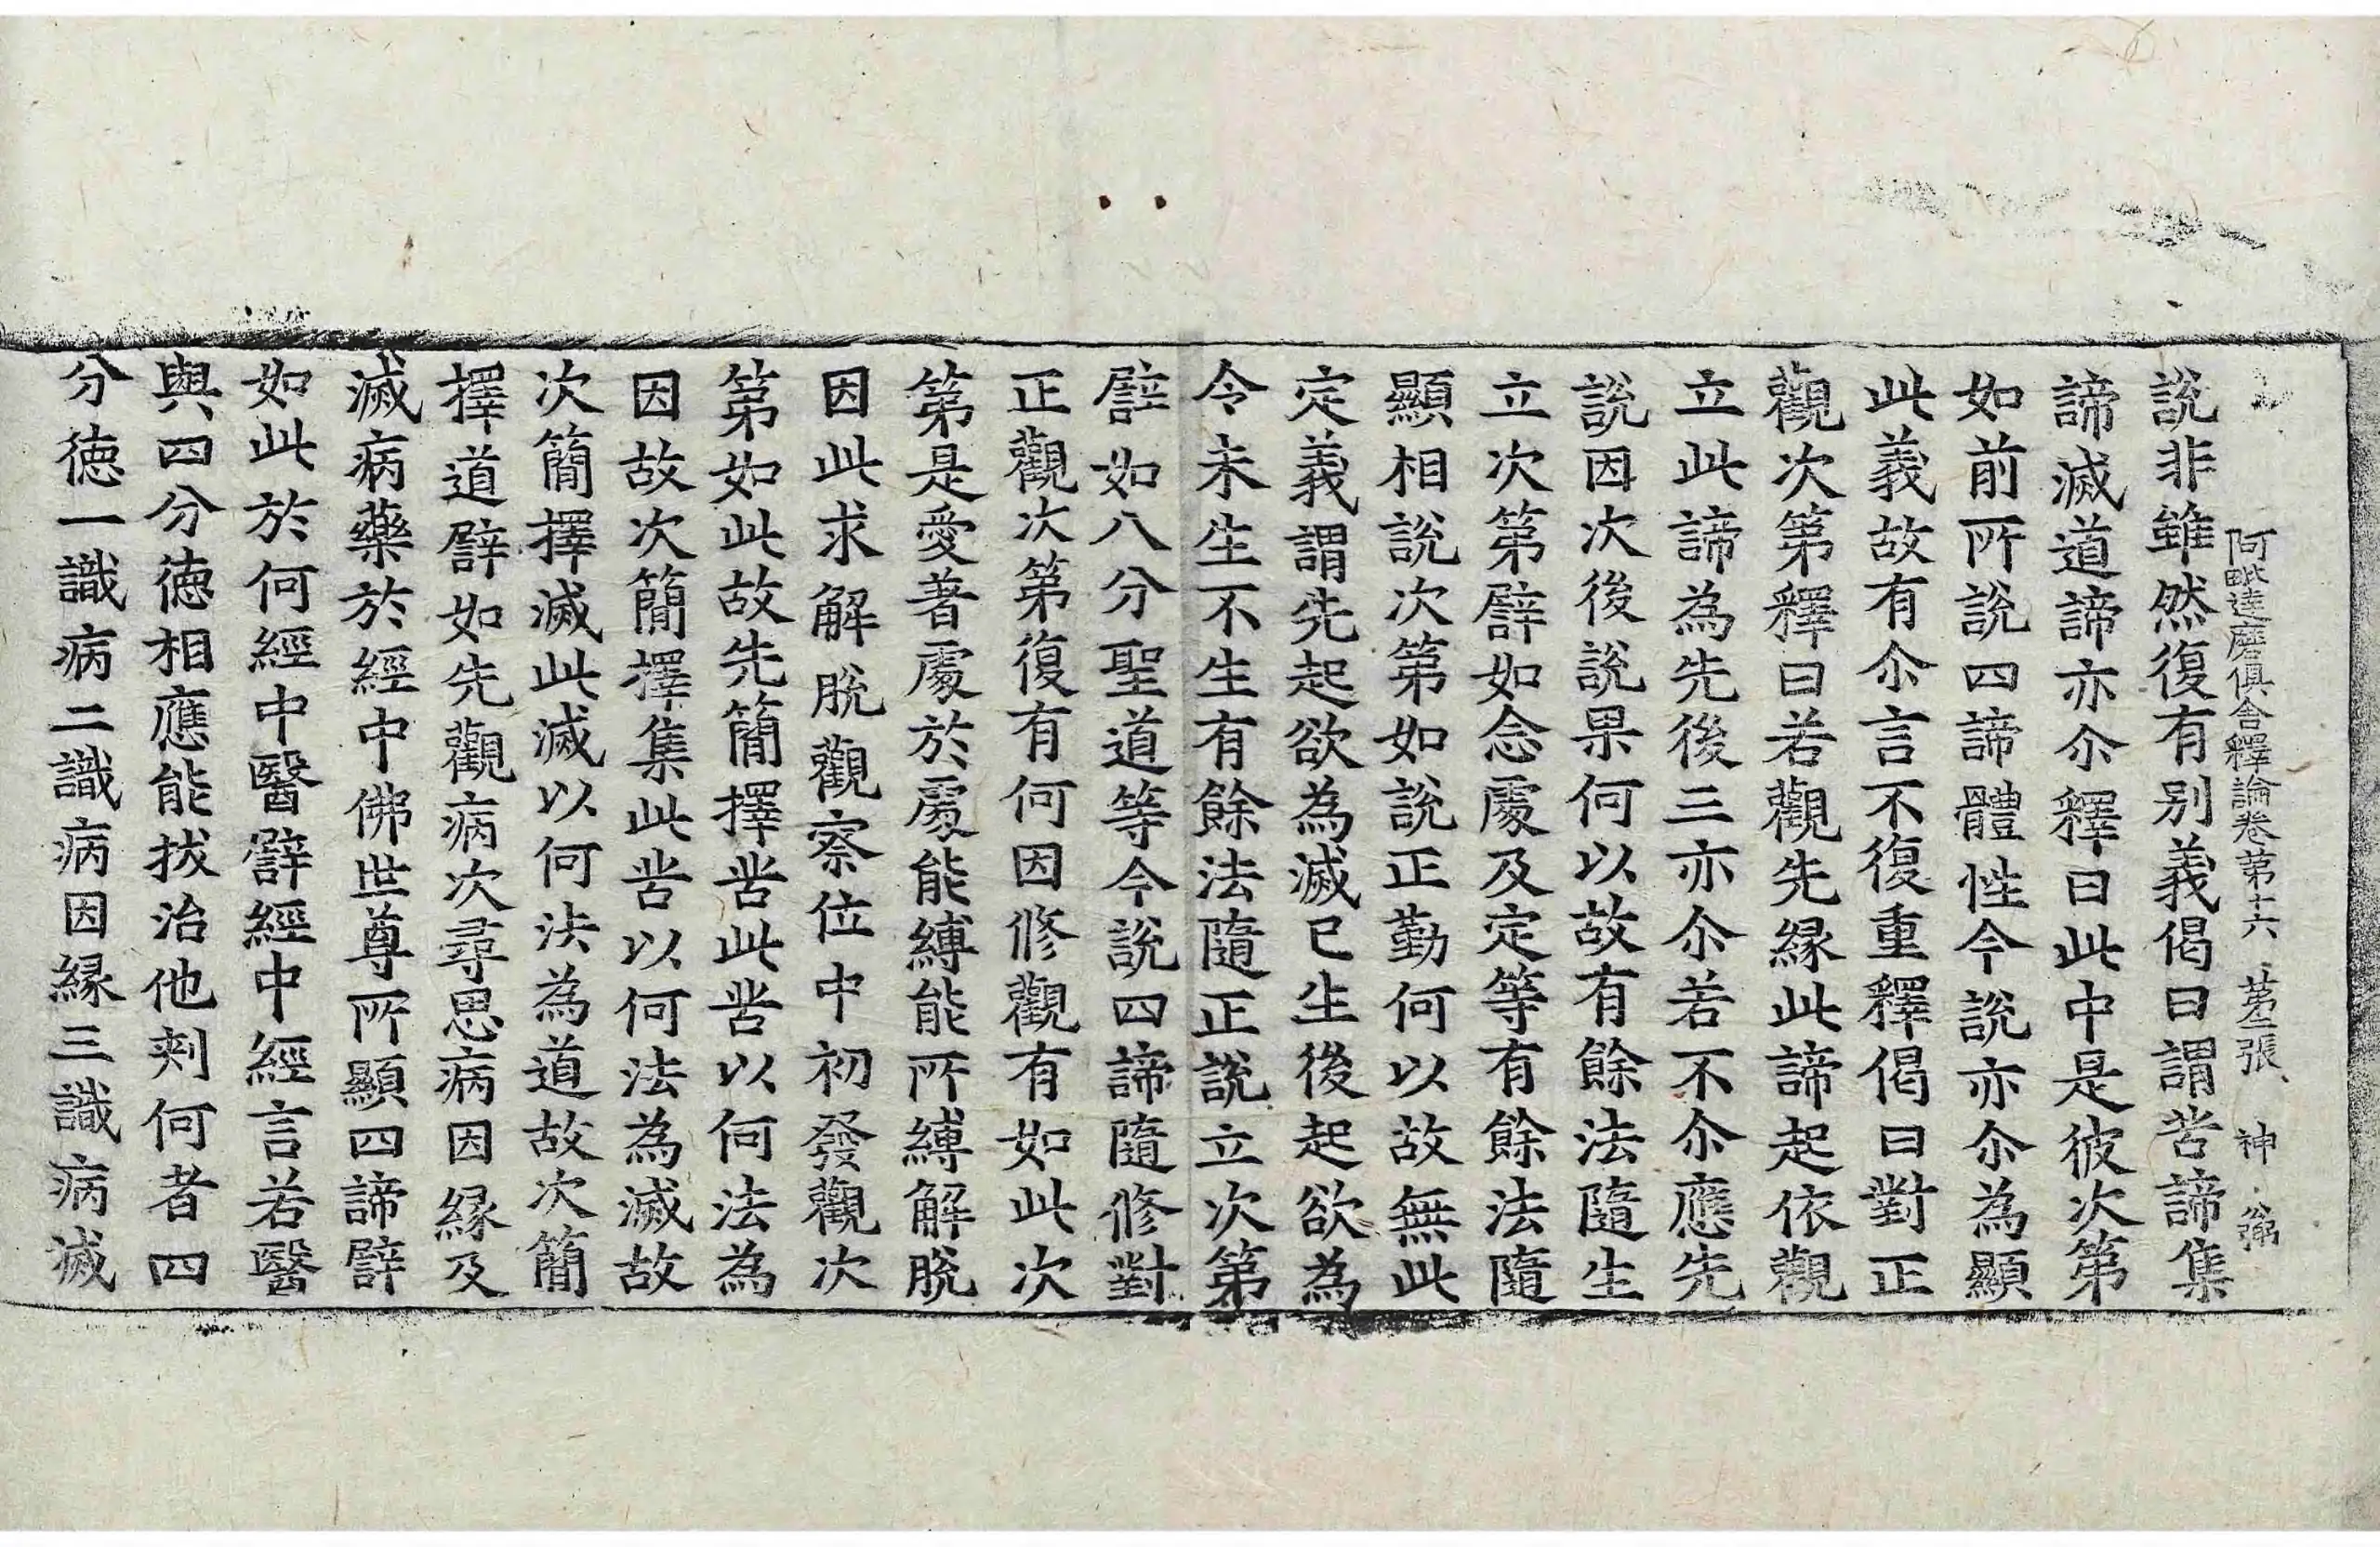 阿毗達磨俱舍釋論卷第十六　第二張　神　弼
說非雖然復有別義偈曰謂苦諦集
諦滅道諦亦尒釋曰此中是彼次第
如前所說四諦體性今說亦尒為顯
此義故有尒言不復重釋偈曰對正
觀次第釋曰若觀先緣此諦起依觀
立此諦為先後三亦尒若不尒應先
說因次後說果何以故有餘法隨生
立次第譬如念處及定等有餘法隨
顯相說次第如說正勤何以故無此
定義謂先起欲為滅已生後起欲為
令未生不生有餘法隨正說立次第
譬如八分聖道等今說四諦隨修對
正觀次第復有何因修觀有如此次
第是愛著處於處能縛能所縛解脫
因此求解脫觀察位中初發觀次
第如此故先簡擇苦此苦以何法為
因故次簡擇集此苦以何法為滅故
次簡擇滅此滅以何法為道故次簡
擇道譬如先觀病次尋思病因緣及
滅病藥於經中佛世尊所顯四諦譬
如此於何經中醫譬經中經言若醫
與四分德相應能拔治他刺何者四
分德一識病二識病因緣三識病滅